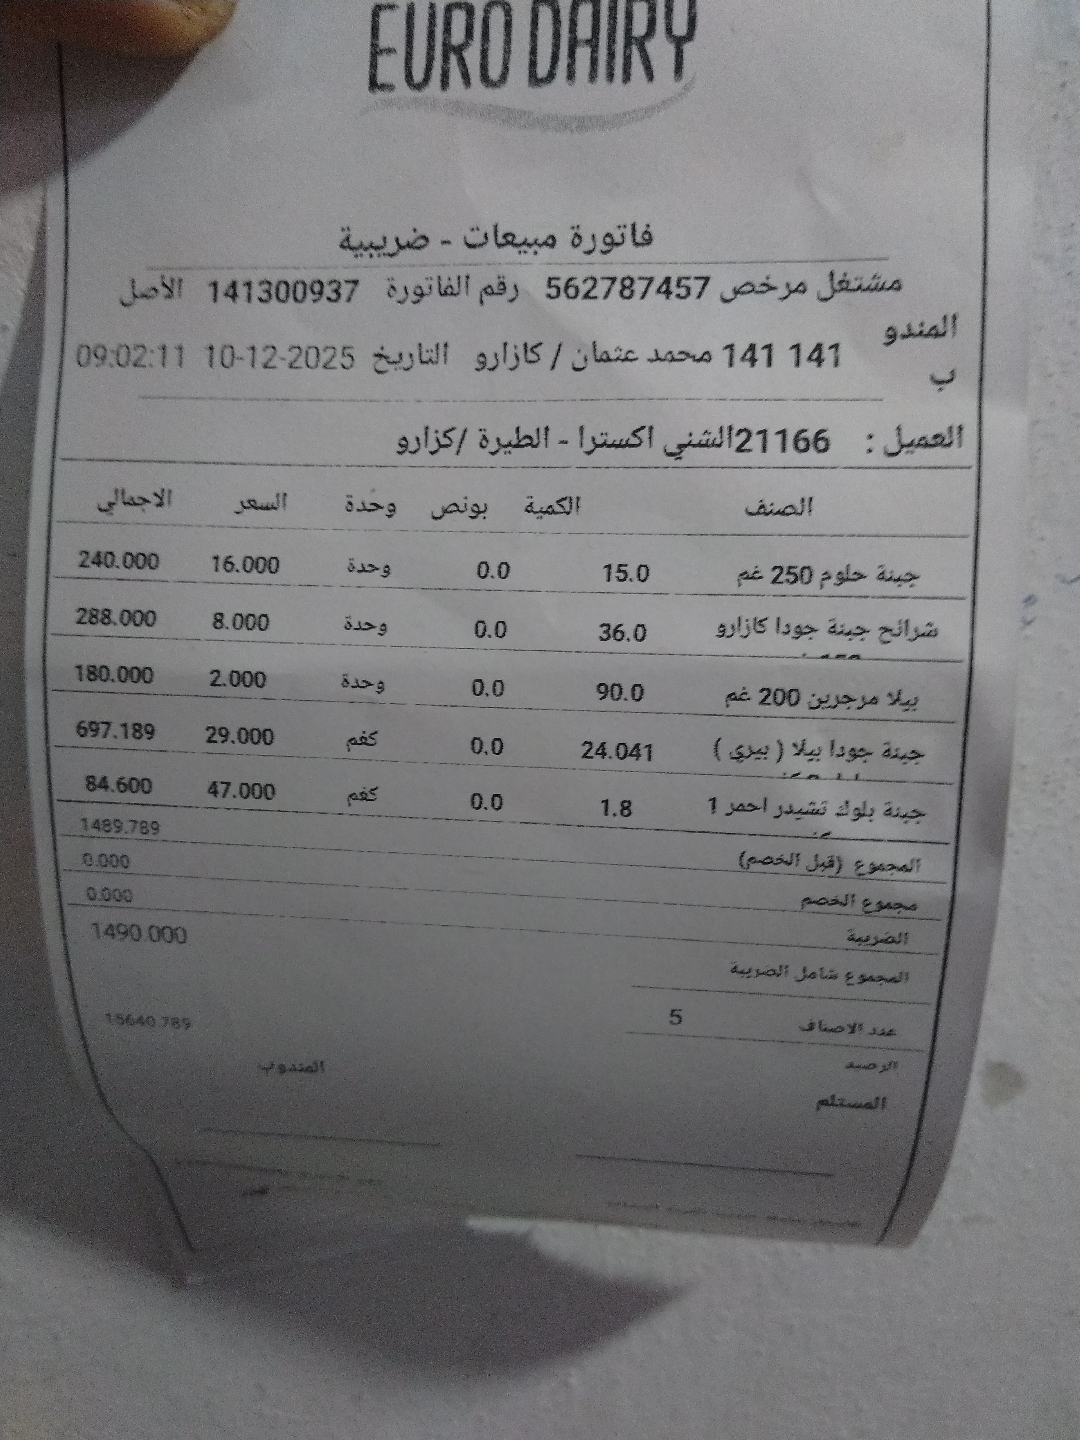 EURO DAIRY
فاتورة مبيعات - ضريبية
مشتغل مرخص 562787457 رقم الفاتورة 141300937 الأصل
المندوب 141 141 محمد عثمان / كازارو التاريخ 10-12-2025 09:02:11
العميل : 21166الشني اكسترا - الطيرة /كزارو
الصنف الكمية بونص وحدة السعر الاجمالي
جبنة حلوم 250 غم 15.0 0.0 وحدة 16.000 240.000
شرائح جبنة جودا كازارو 36.0 0.0 وحدة 8.000 288.000
بيلا مرجرين 200 غم 90.0 0.0 وحدة 2.000 180.000
جبنة جودا بيلا ( بيري ) 24.041 0.0 كغم 29.000 697.189
جبنة بلوك تشيدر احمر 1 1.8 0.0 كغم 47.000 84.600
المجموع (قبل الخصم) 1489.789
مجموع الخصم 0.000
الضريبة 0.000
المجموع شامل الضريبة 1490.000
عدد الاصناف 5
الرصيد 15640.789
المستلم المندوب